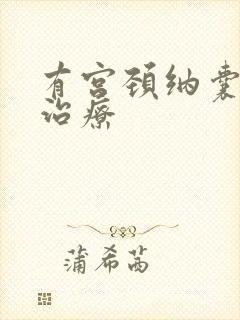 有宫颈纳囊
治疗
蒲希茜